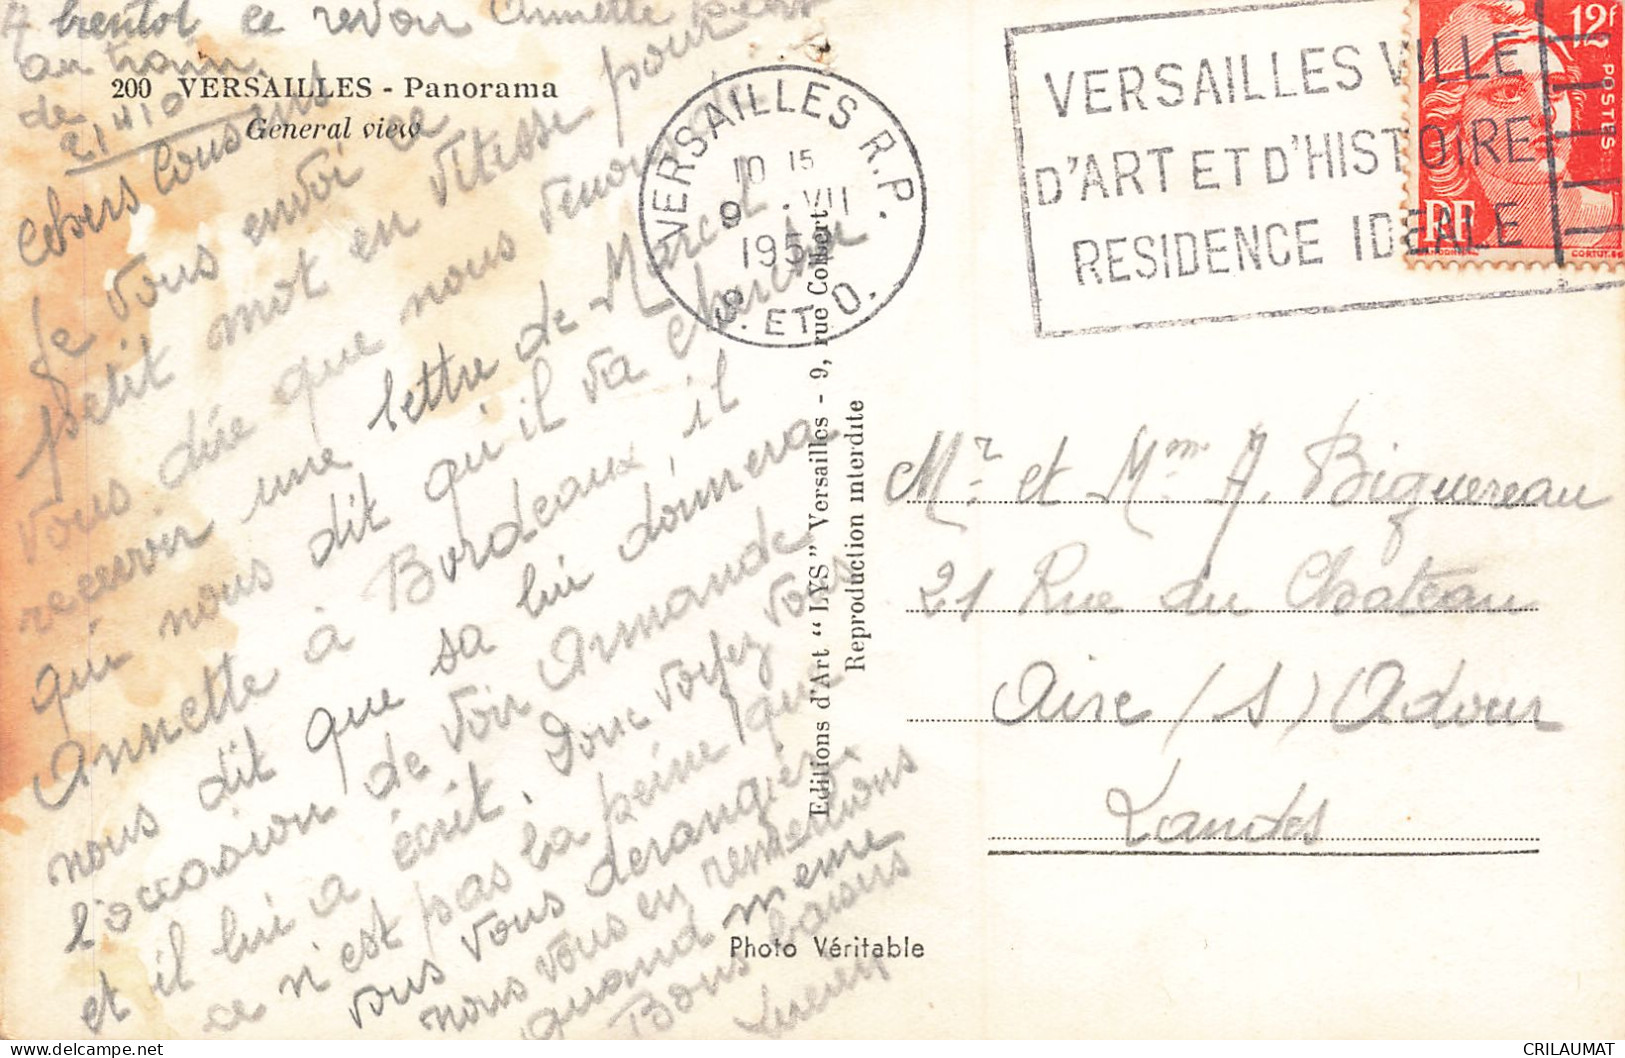 A bientot ce revoir Annette
au train
de
21H10
200 VERSAILLES - Panorama
General view
Chers Cousins
Je vous envoi ce
petit mot en vitesse pour
vous dire que nous venons de
recevoir une lettre de Marcel
qui nous dit qu'il va chercher
Annette à Bordeaux, il
nous dit que sa lui donnera
l'occasion de voir Armande
et il lui a écrit. Donc voyez vous
ce n'est pas la peine que
vous vous derangiez
nous vous en remercions
quand meme
Bons baisers
Lucien
Editions d'Art "LYS" Versailles - 9, rue Colbert
Reproduction interdite
Photo Véritable
VERSAILLES R.P.
10 15
9 - VII
195
S. ET O.
VERSAILLES VILLE
D'ART ET D'HISTOIRE
RESIDENCE IDEALE
12F
POSTES
RF
CORTOT.SC
Mr et Mme A. Biguereau
21 Rue du Chateau
Aire (S) Adour
Landes
CRILAUMAT